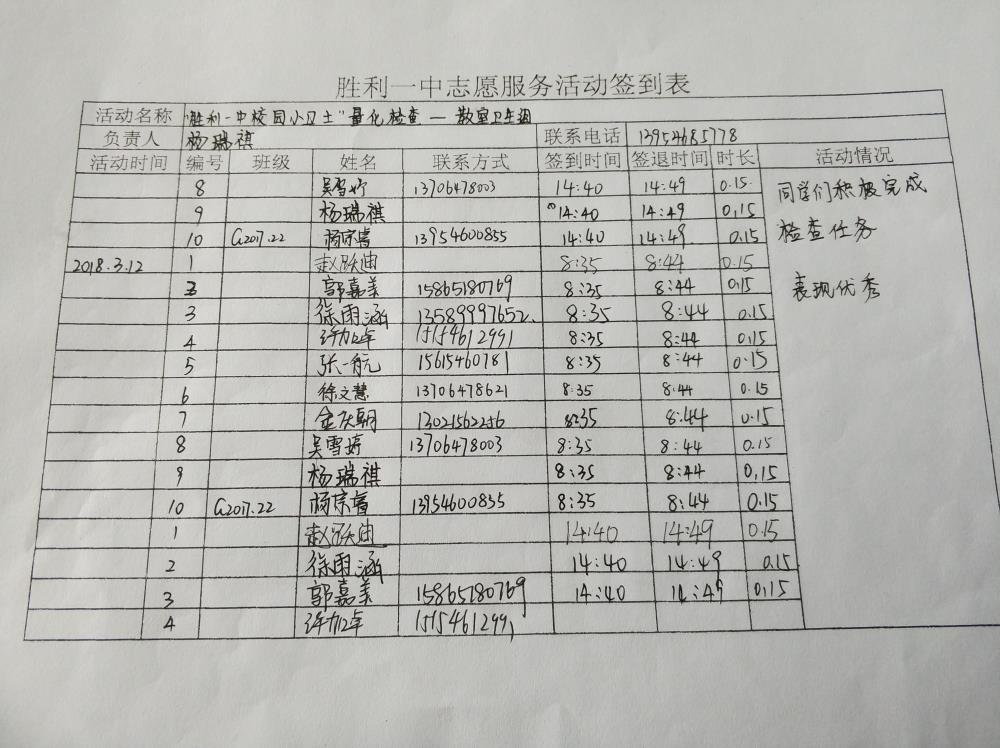 胜利一中志愿服务活动签到表
活动名称 "胜利一中校园小卫士"量化检查—教室卫生组
负责人 杨瑞祺 联系电话 13954685778
活动时间 编号 班级 姓名 联系方式 签到时间 签退时间 时长 活动情况
8 吴雪婷 13706478003 14:40 14:49 0.15 同学们积极完成
9 杨瑞祺 14:40 14:49 0.15 检查任务
10 G2017.22 杨宗睿 13954600855 14:40 14:49 0.15
2018.3.12 1 赵跃迪 8:35 8:44 0.15 表现优秀
2 郭嘉美 15865180769 8:35 8:44 0.15
3 徐雨涵 13589997652 8:35 8:44 0.15
4 许加卓 15154612991 8:35 8:44 0.15
5 张一航 15615460781 8:35 8:44 0.15
6 徐文慧 13706478621 8:35 8:44 0.15
7 金庆朝 13021562256 8:35 8:44 0.15
8 吴雪婷 13706478003 8:35 8:44 0.15
9 杨瑞祺 8:35 8:44 0.15
10 G2017.22 杨宗睿 13954600855 8:35 8:44 0.15
1 赵跃迪 14:40 14:49 0.15
2 徐雨涵 14:40 14:49 0.15
3 郭嘉美 15865180769 14:40 14:49 0.15
4 许加卓 15154612991